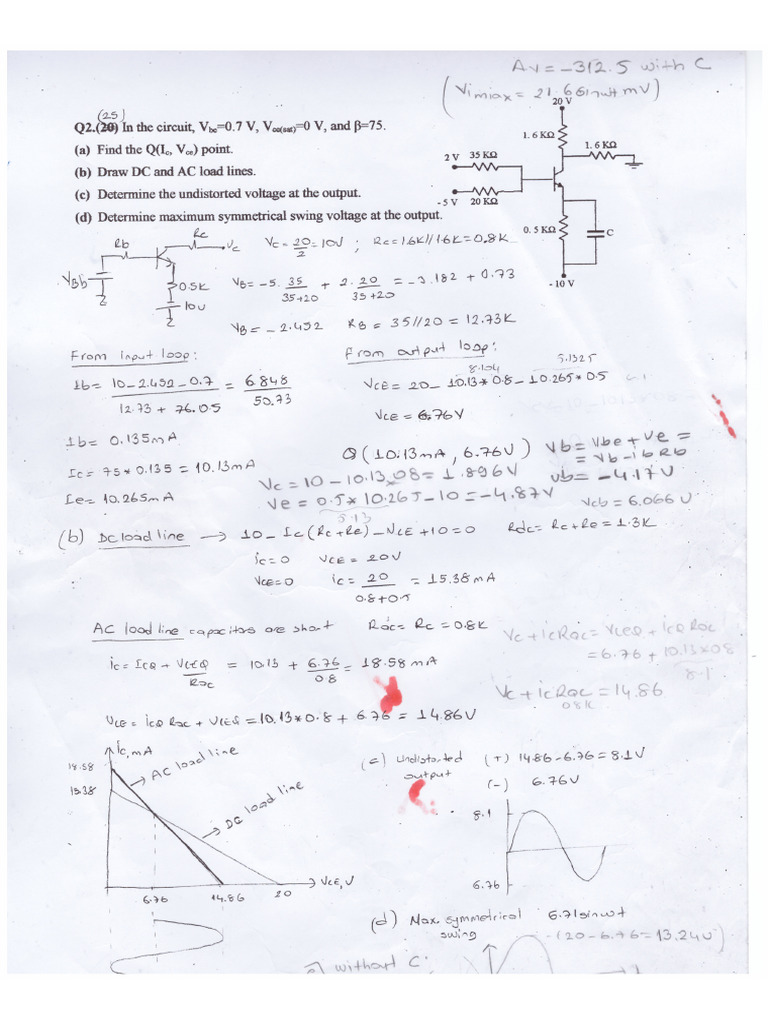 Av = -312.5 with C
(Vimax = 21.661nwt mV)
(25)
Q2.(20) In the circuit, Vbe=0.7 V, Vce(sat)=0 V, and β=75.
(a) Find the Q(Ic, Vce) point.
(b) Draw DC and AC load lines.
(c) Determine the undistorted voltage at the output.
(d) Determine maximum symmetrical swing voltage at the output.
20 V
1.6 KΩ
1.6 KΩ
2 V 35 KΩ
-5 V 20 KΩ
0.5 KΩ
C
-10 V
Rb
Rc
Vc
VBb
0.5K
10V
Vc = 20/2 = 10V ; Rc = 1.6K//1.6K = 0.8K
VB = -5. 35/35+20 + 2. 20/35+20 = -3.182 + 0.73
VB = -2.452 RB = 35//20 = 12.73K
From input loop:
Ib = 10-2.452-0.7/12.73+76.0.5 = 6.848/50.73
Ib = 0.135mA
Ic = 75*0.135 = 10.13mA
Ie = 10.265mA
From output loop:
8.104
5.1325
VCE = 20-10.13*0.8-10.265*0.5
VCE = 6.76V
Q(10.13mA, 6.76V)
Vb = Vbe + Ve =
= Vb - ib Rb
Vb = -4.17V
Vc = 10-10.13.08 = 1.896V
Ve = 0.5*10.265-10 = -4.87V
5.13
Vcb = 6.066V
(b) DC load line → 10-Ic(Rc+Re)-VCE+10=0 Rdc = Rc+Re = 1.3K
ic=0 VCE = 20V
VCE=0 ic = 20/0.8+0.5 = 15.38mA
AC load line capacitors are short Rac = Rc = 0.8K
ic = ICQ + VCEQ/Rac = 10.13 + 6.76/0.8 = 18.58 mA
Vc + icRac = VCEQ + icQ Rac
= 6.76 + 10.13*08
8.1
Vc + icRac = 14.86
08K
VCE = icQ Rac + VCEQ = 10.13*0.8 + 6.76 = 14.86V
ic, mA
18.58
15.38
AC load line
DC load line
VCE, V
6.76 14.86 20
(c) Undistorted output
(+) 14.86-6.76 = 8.1V
(-) 6.76V
8.1
6.76
(d) Max. symmetrical swing 6.71sinwt
-(20-6.76=13.24V)
without C: